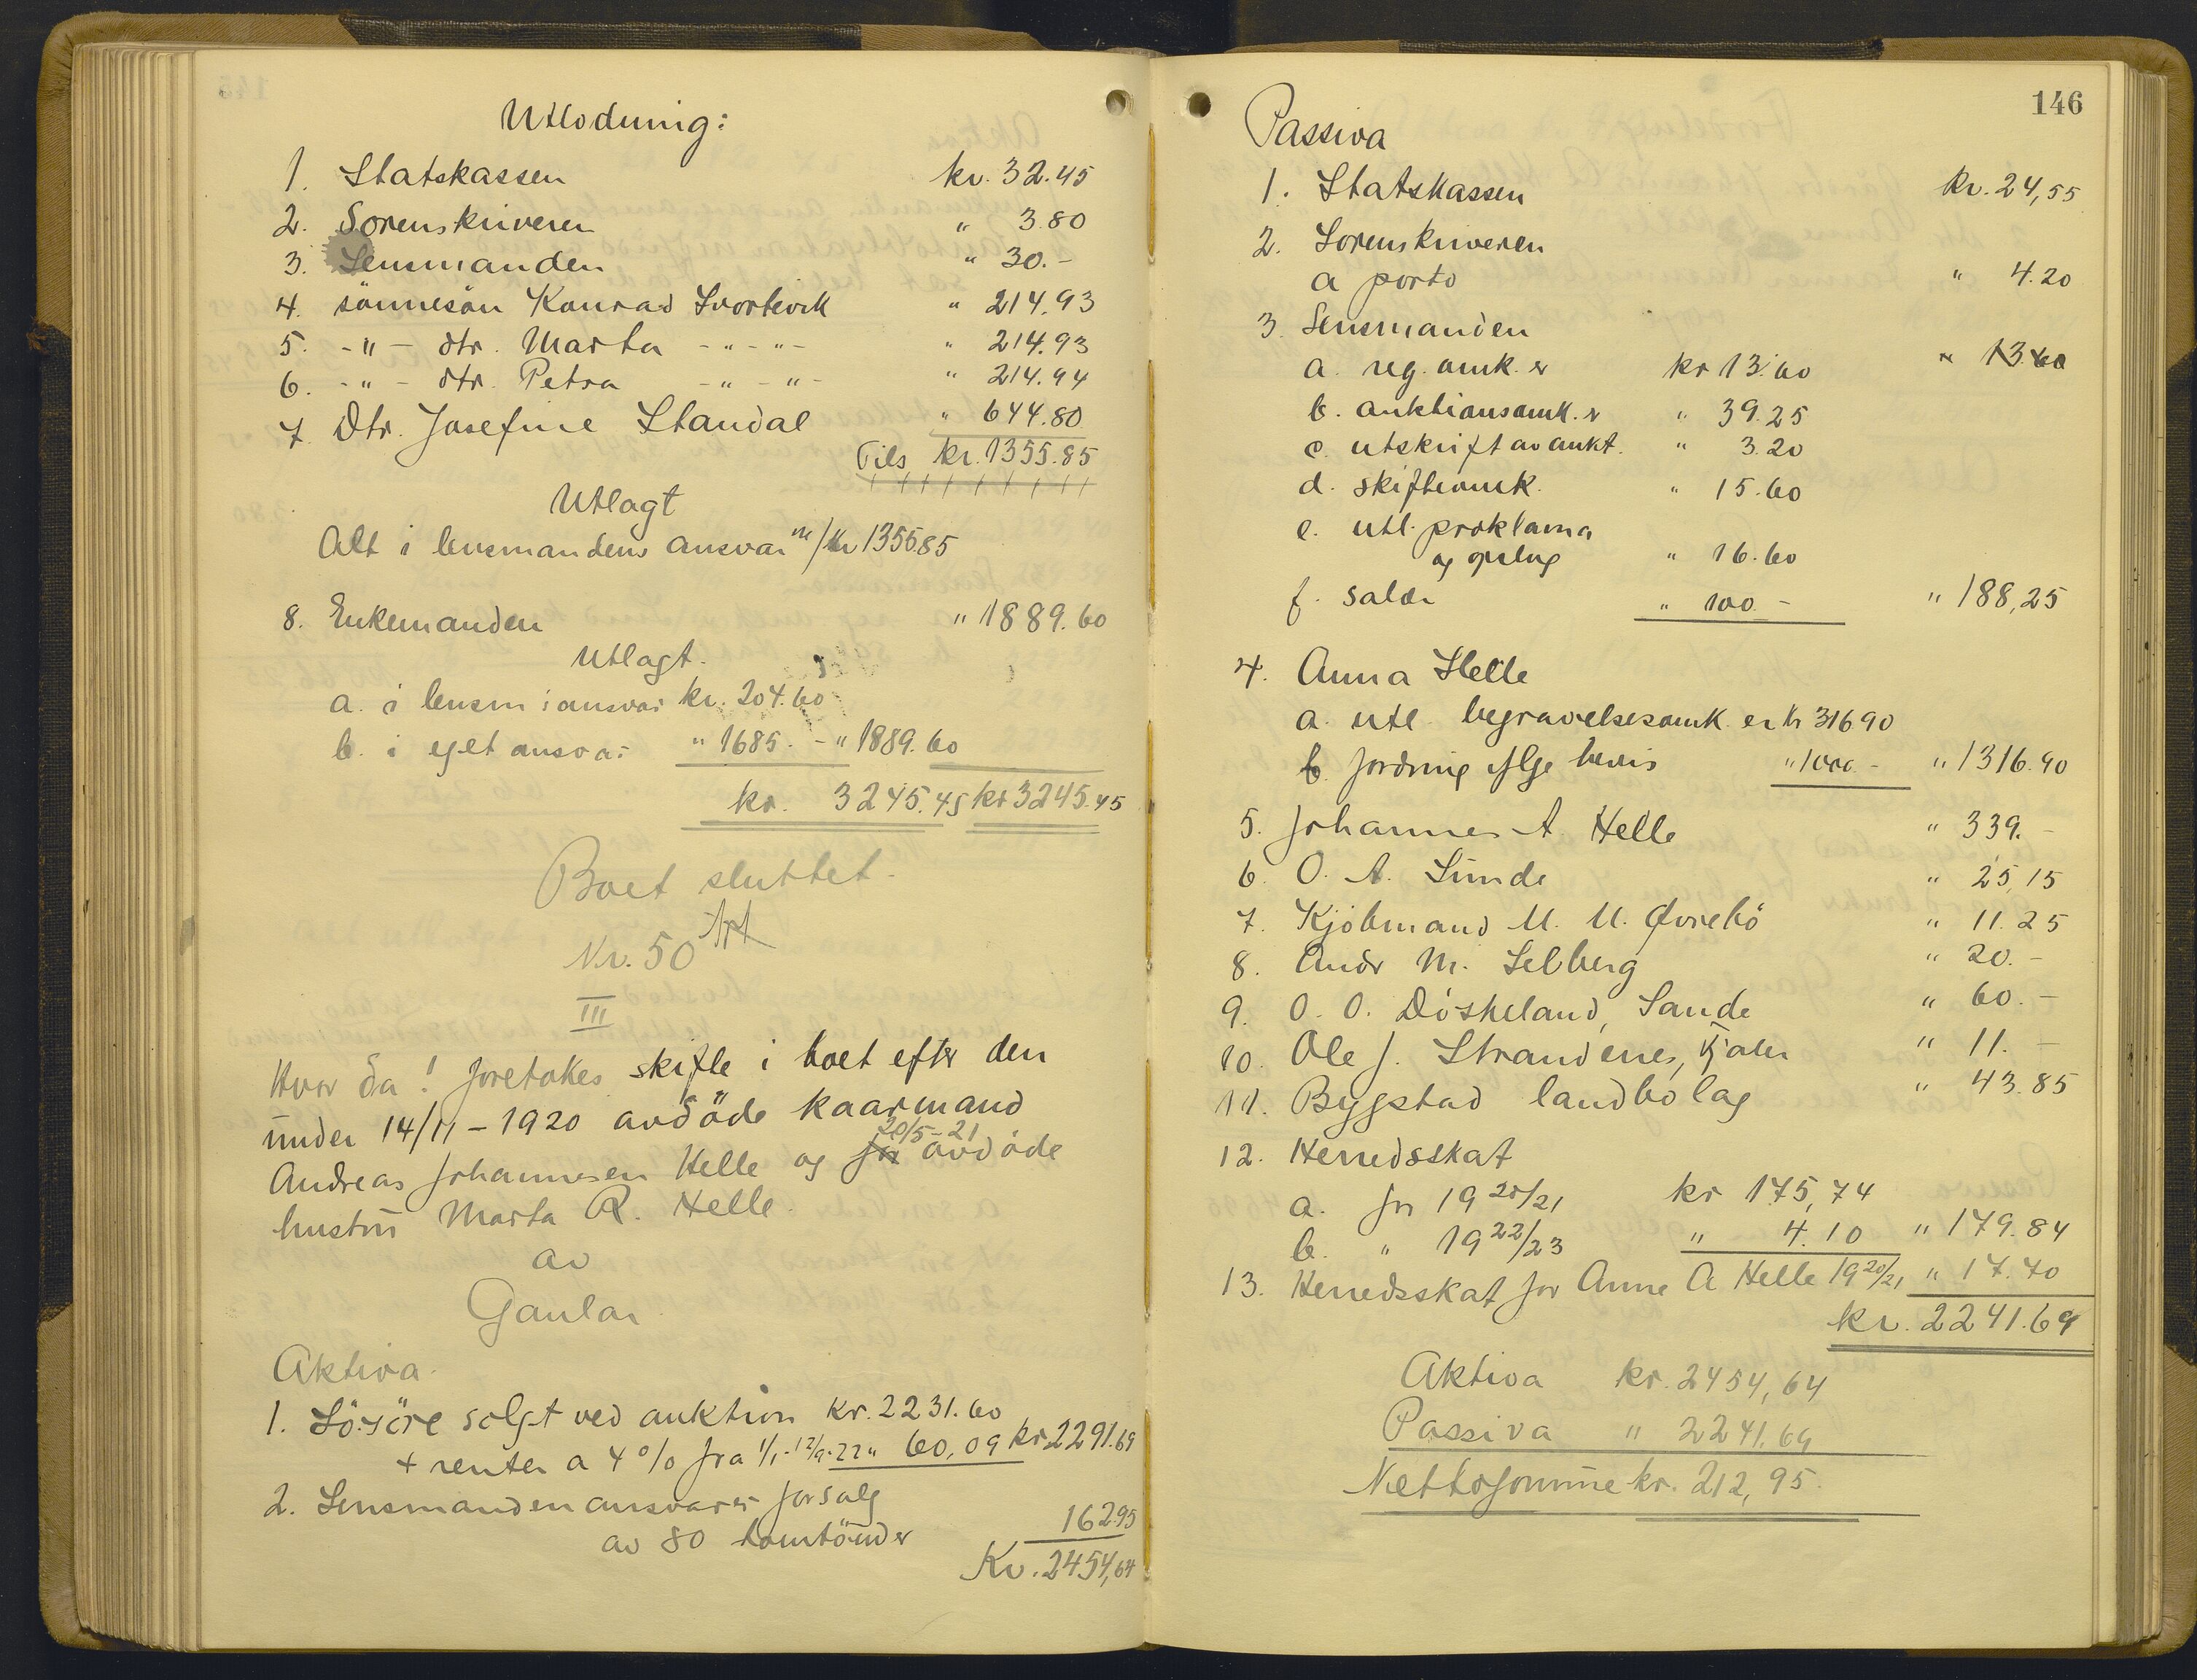 Utlodning:
1. Statskassen kr. 32.45
2. Sorenskriveren " 3.80
3. Lensmanden " 30.-
4. sönnesön Konrad Svortevik " 214.93
5. -"- dtr. Marta -"-"- " 214.93
6. -"- dtr. Petra -"-"- " 214.94
7. Dtr. Josefine Standal " 644.80
Tils kr. 1355.85
Utlagt
Alt i lensmandens ansvar m/kr 1355.85
8. Enkemanden " 1889.60
Utlagt.
a. i lensm: ansvar kr. 204.60
b. i eget ansvar " 1685.- " 1889.60
kr. 3245.45 kr 3245.45
Boet sluttet.
Nr. 50
III
Hvor da! foretokes skifte i boet efter den
under 14/11-1920 avdöde kaarmand
Andreas Johannesen Helle og 20/5-21 avdöde
hustru Marta R. Helle.
av
Gaular
Aktiva.
1. Lösöre solgt ved auktion kr. 2231.60
+ renter a 4 % fra 1/1-12/9-22 " 60,09 kr 2291.69
2. Lensmanden ansvarer for salg
av 80 tomtönder 162.95
Kr. 2454,64
146
Passiva
1. Statskassen kr. 24,55
2. Sorenskriveren
a porto " 4.20
3. Lensmanden
a. reg. omk. er kr 13.60 " 13.60
b. auktionsomk. er " 39.25
c. utskrift av aukt. " 3.20
d. skifteomk. " 15.60
e. utl. proklama
og opslag " 16.60
f. salær " 100.- " 188,25
4. Anna Helle
a. utl. begravelsesomk. er kr 316.90
b. fordring iflge bevis " 1000.- " 1316.90
5. Johannes A. Helle " 339.-
6. O. A. Sunde " 25,15
7. Kjöbmand M. M. Øvrebö " 11.25
8. Andr M. Selberg " 20.-
9. O. O. Döskeland, Sande " 60.-
10. Ole J. Strandenes, " 11.-
11. Bygstad landbolag " 43.85
12. Herredsskat
a. for 1920/21 kr 175,74
b. " 1922/23 " 4.10 " 179.84
13. Herredsskat for Anne A Helle 1920/21 " 17.70
kr. 2241.69
Aktiva kr. 2454,64
Passiva " 2241.69
Nettoformue kr. 212,95.